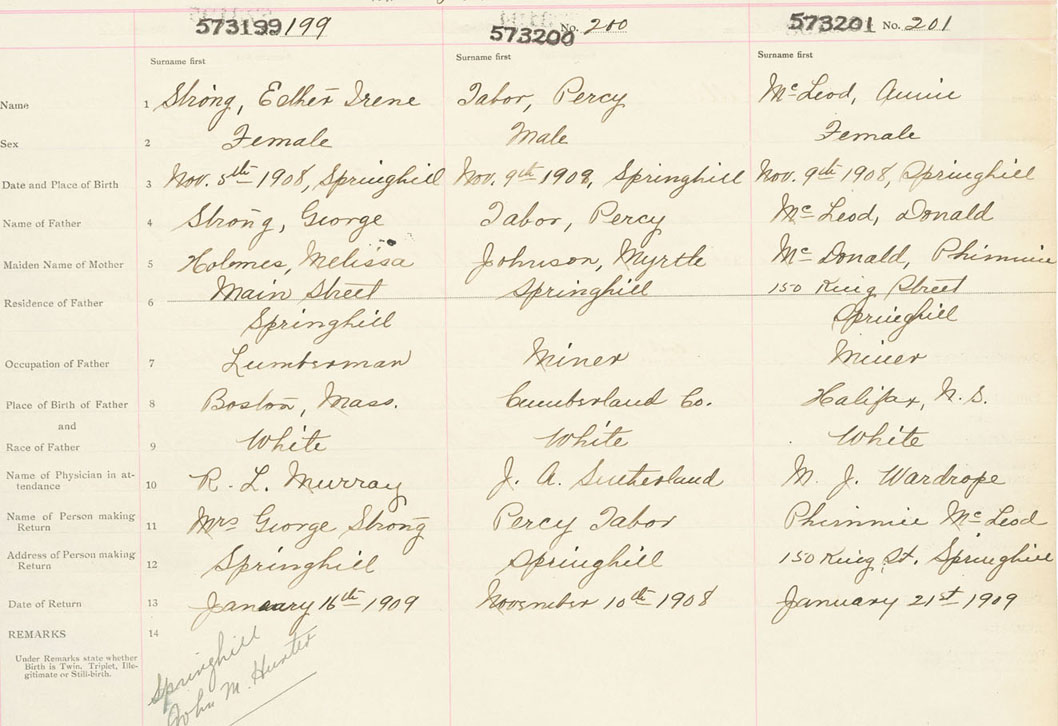 573199 199 573200 No. 200 573201 No. 201
Surname first Surname first Surname first
Name 1 Strong, Esther Irene Tabor, Percy McLeod, Annie
Sex 2 Female Male Female
Date and Place of Birth 3 Nov. 5th 1908, Springhill Nov. 9th 1908, Springhill Nov. 9th 1908, Springhill
Name of Father 4 Strong, George Tabor, Percy McLeod, Donald
Maiden Name of Mother 5 Holmes, Melissa Johnson, Myrtle McDonald, Phimmie
Residence of Father 6 Main Street Springhill 150 King Street
Springhill Springhill
Occupation of Father 7 Lumberman Miner Miner
Place of Birth of Father 8 Boston, Mass. Cumberland Co. Halifax, N.S.
and
Race of Father 9 White White White
Name of Physician in at-
tendance 10 R. L. Murray J. A. Sutherland M. J. Wardrope
Name of Person making
Return 11 Mrs George Strong Percy Tabor Phimmie McLeod
Address of Person making
Return 12 Springhill Springhill 150 King St. Springhill
Date of Return 13 January 16th 1909 November 10th 1908 January 21st 1909
REMARKS 14
Under Remarks state whether
Birth is Twin, Triplet, Ille-
gitimate or Still-birth.
Springhill
John M. Hunter